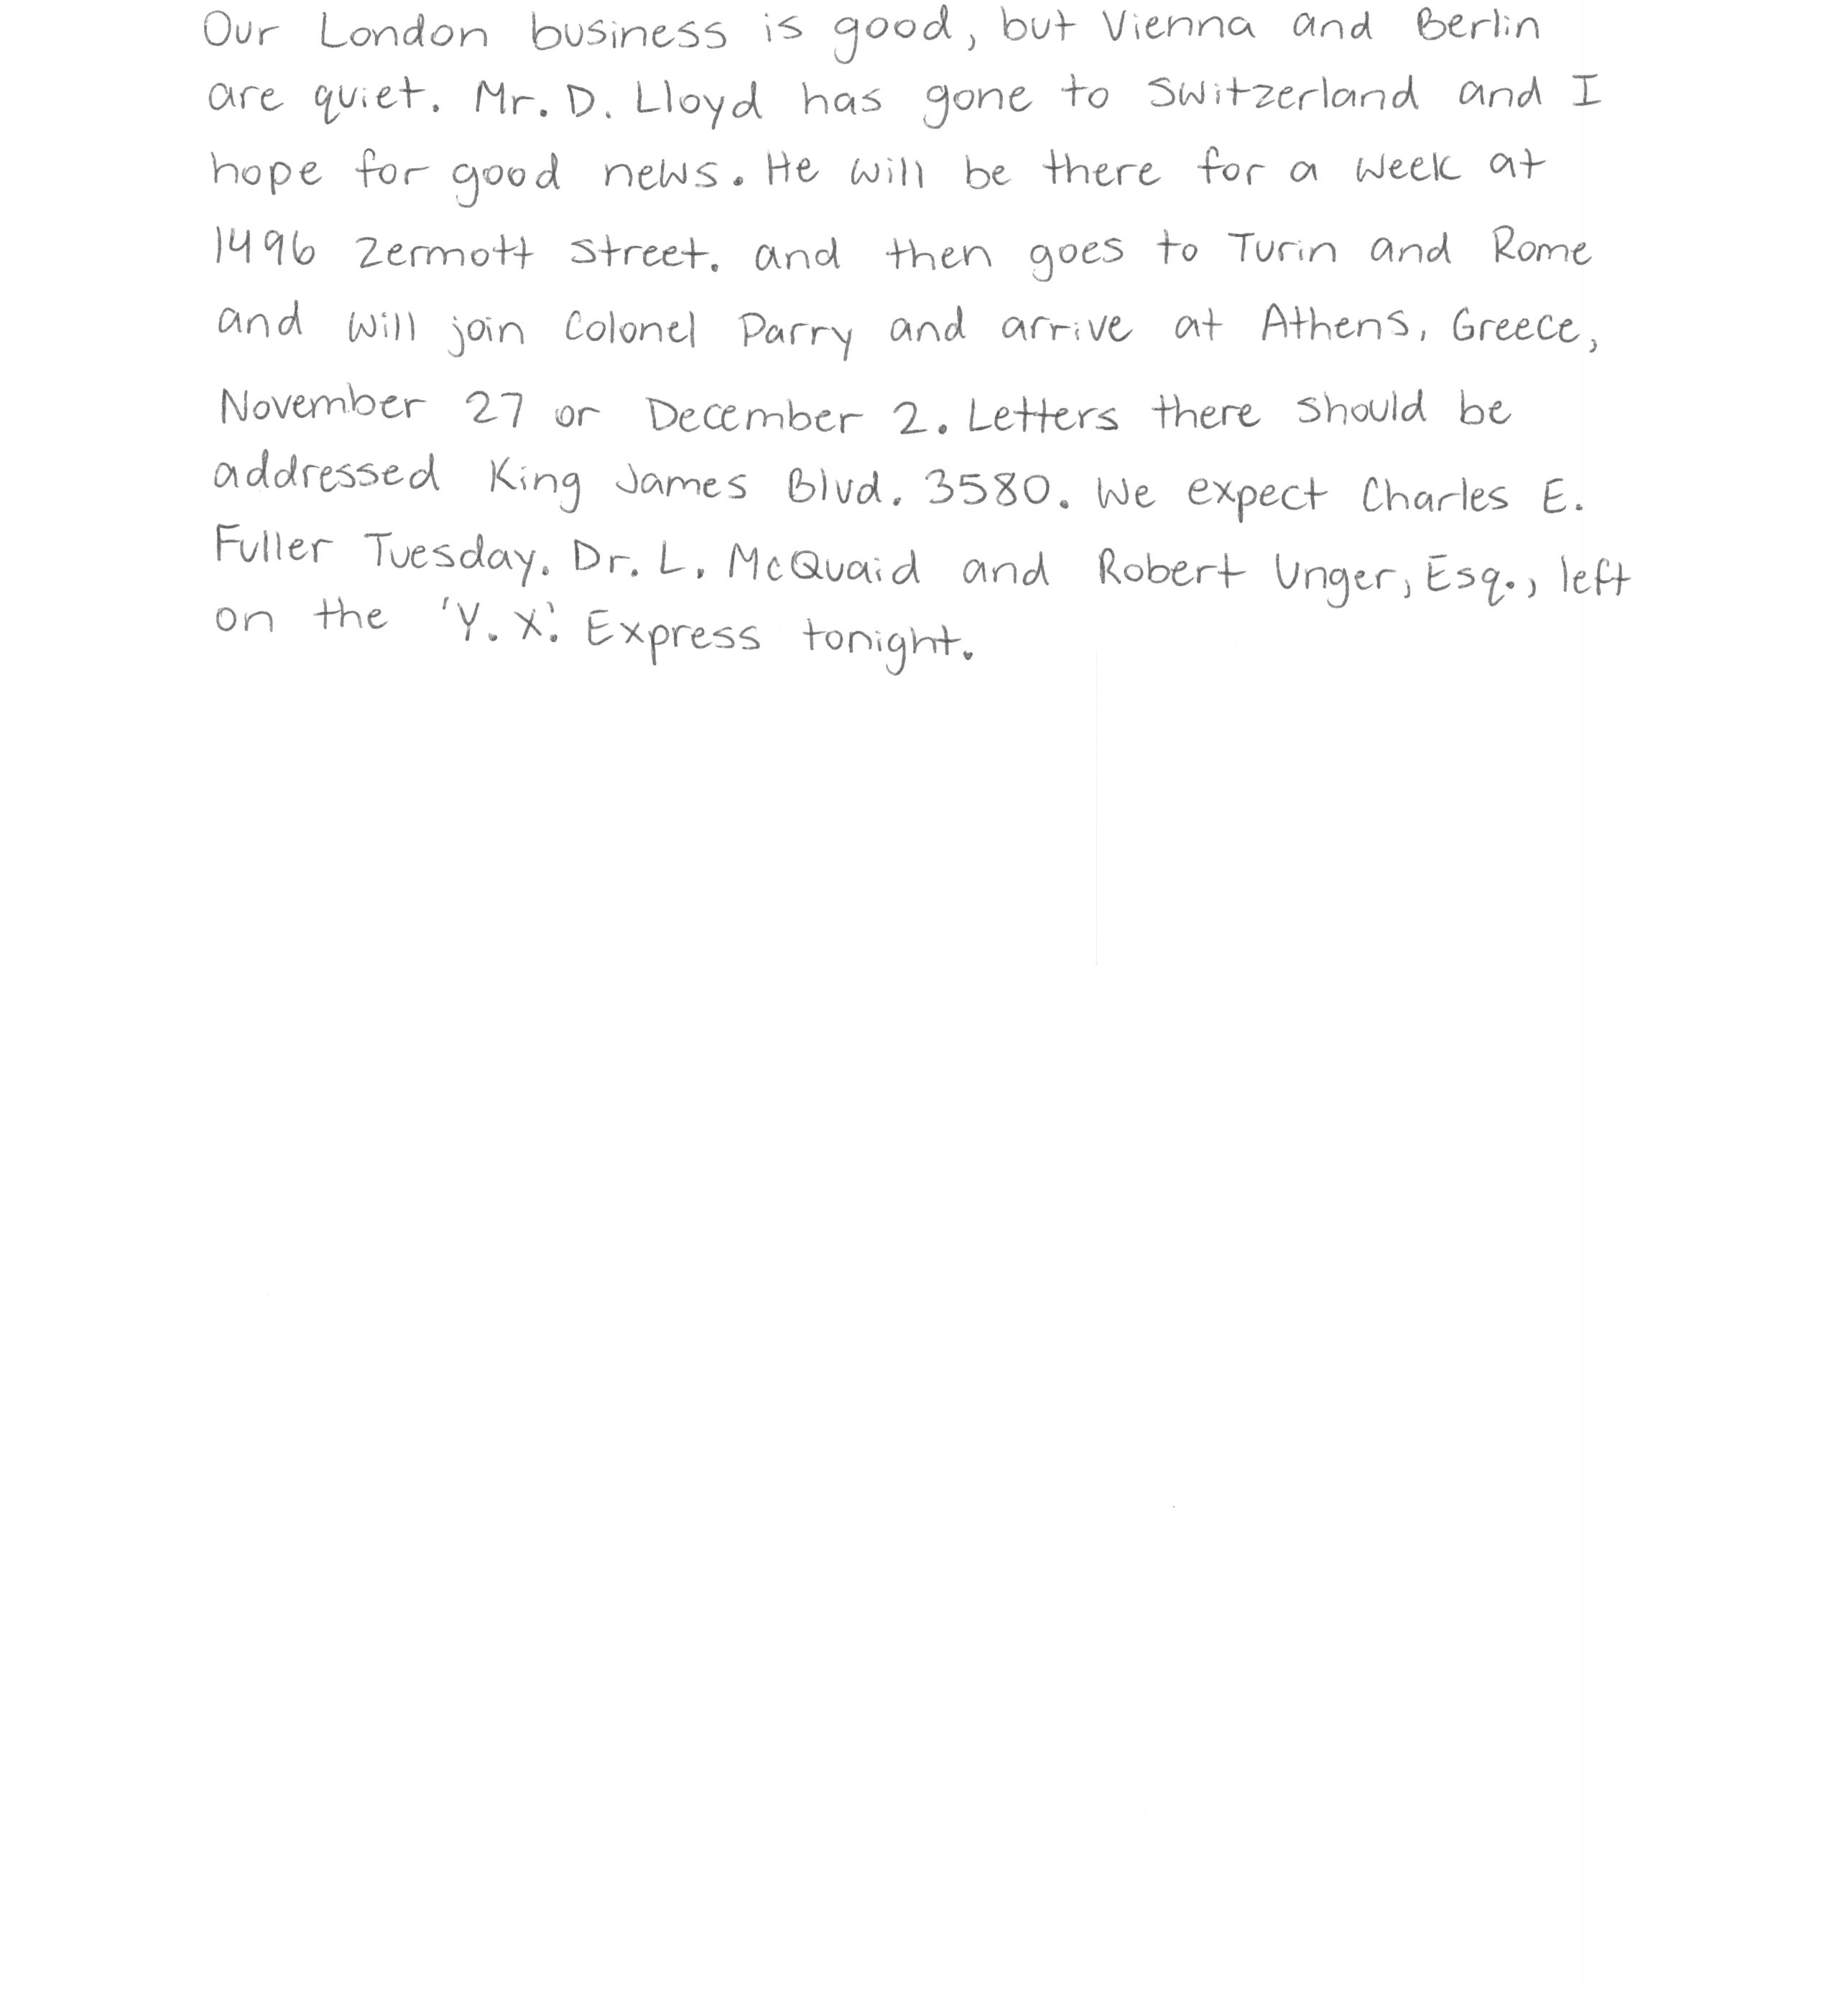 Our London business is good, but Vienna and Berlin
are quiet. Mr. D. Lloyd has gone to Switzerland and I
hope for good news. He will be there for a week at
1496 Zermott Street. and then goes to Turin and Rome
and will join Colonel Parry and arrive at Athens, Greece,
November 27 or December 2. Letters there should be
addressed King James Blvd. 3580. We expect Charles E.
Fuller Tuesday. Dr. L. McQuaid and Robert Unger, Esq., left
on the 'Y. X.' Express tonight.